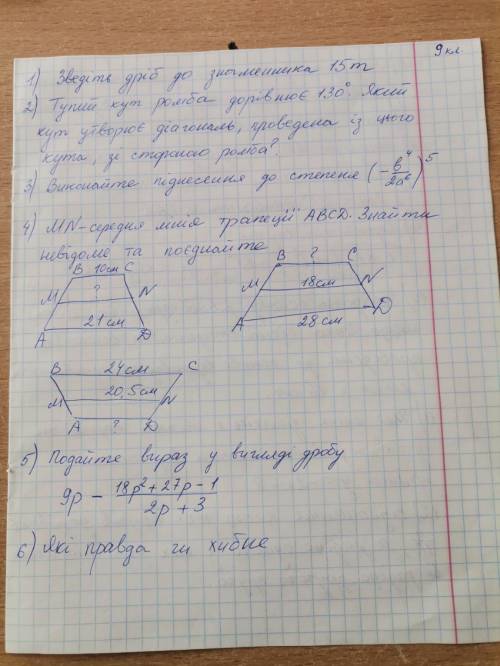 9 кл.
1) Зведіть дріб до знаменника 15m
2) Тупий кут ромба дорівнює 130°. Який
кут утворює діагональ, проведена із цього
кута, зі стороною ромба?
3) Виконайте піднесення до степеня (-b⁴/2a⁶)⁵
4) MN-середня лінія трапеції ABCD. Знайти
невідоме та поєднайте
B 10см C
M ? N
21 см
A D
B ? C
M 18см N
A D
28 см
B 24см C
20,5см
M N
A ? D
5) Подайте вираз у вигляді дробу
9p - (18p²+27p-1)/(2p+3)
6) Які правда чи хибне